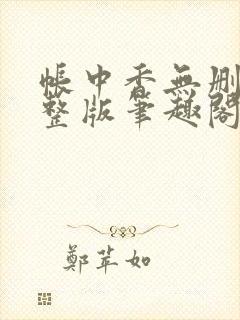 帳中香無刪
整版筆趣閣
鄭苹如